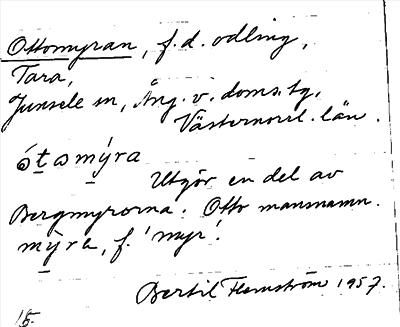 Ottomyran, f.d. odling,
Tara,
Junsele sn, Ång. v. doms.tg,
Västernorrl. län.
ó̀t̲omýra
Utgör en del av
Bergmyrorna. Otto mansnamn.
my̲ra, f. 'myr'.
Bertil Flemström 1957.
15.